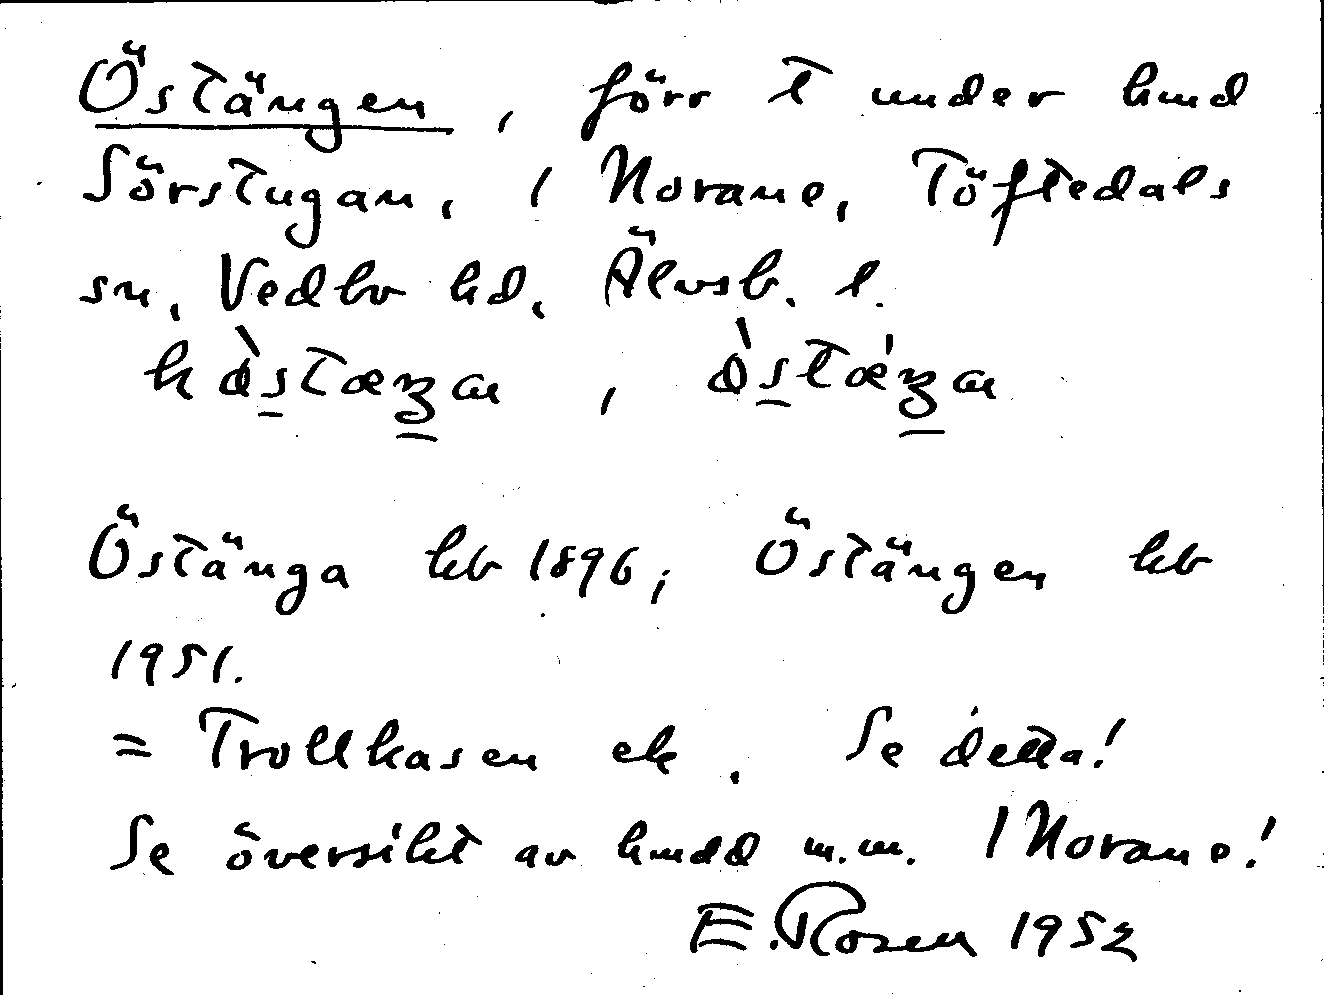 Östängen, förr t under hmd
Sörstugan, 1 Norane, Töftedals
sn, Vedbo hd, Älvsb. l.
Östänga kb 1896; Östängen kb
1951.
= Trollkasen ek. Se detta!
Se översikt av hmdd m.m. 1 Norane!
E. Rosen 1952